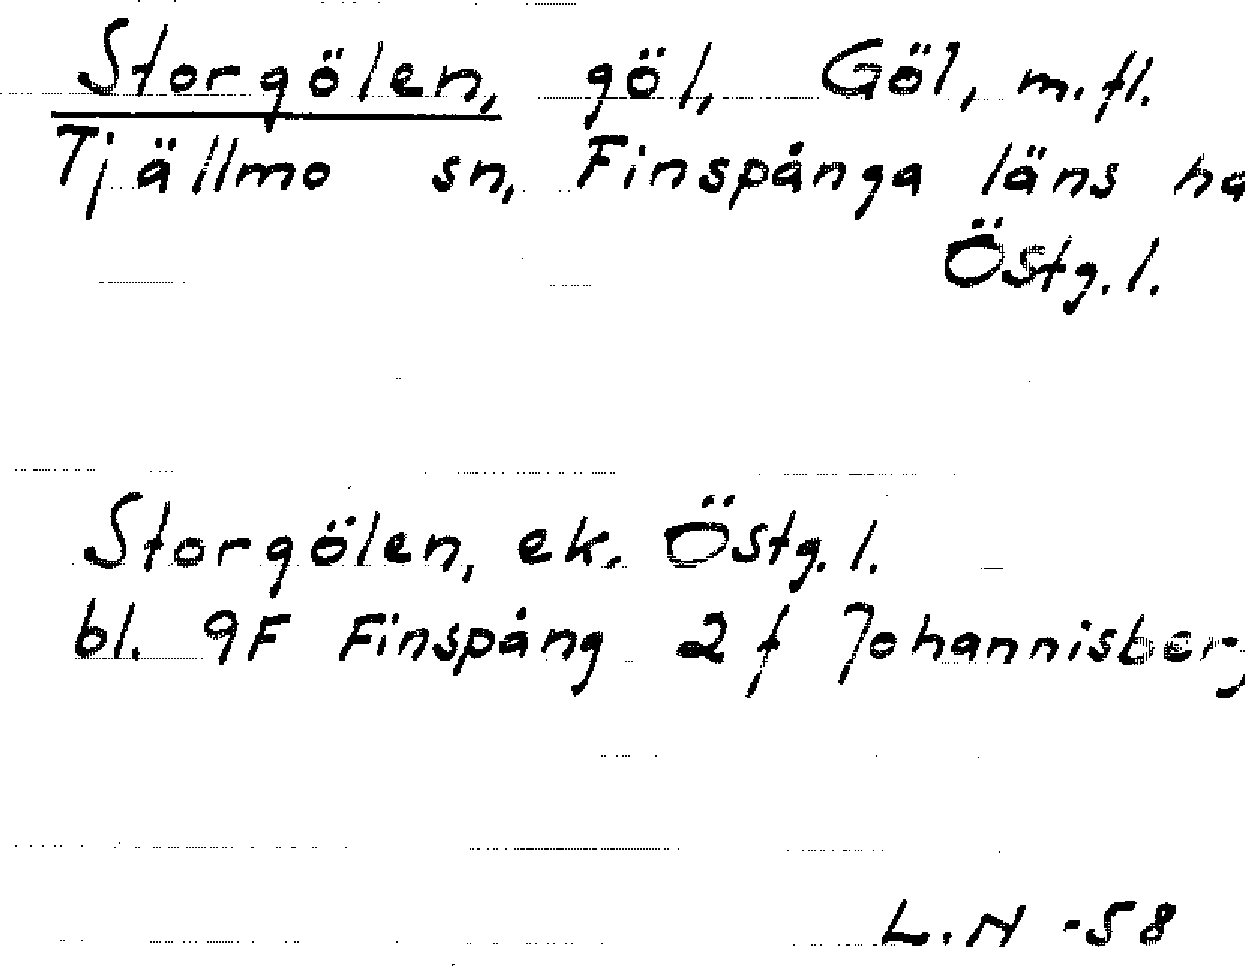 Storgölen, göl, Göl, m.fl.
Tjällmo sn, Finspånga läns ha
Östg.l.
Storgölen, ek. Östg.l.
bl. 9F Finspång 2f Johannisberg
L.N -58